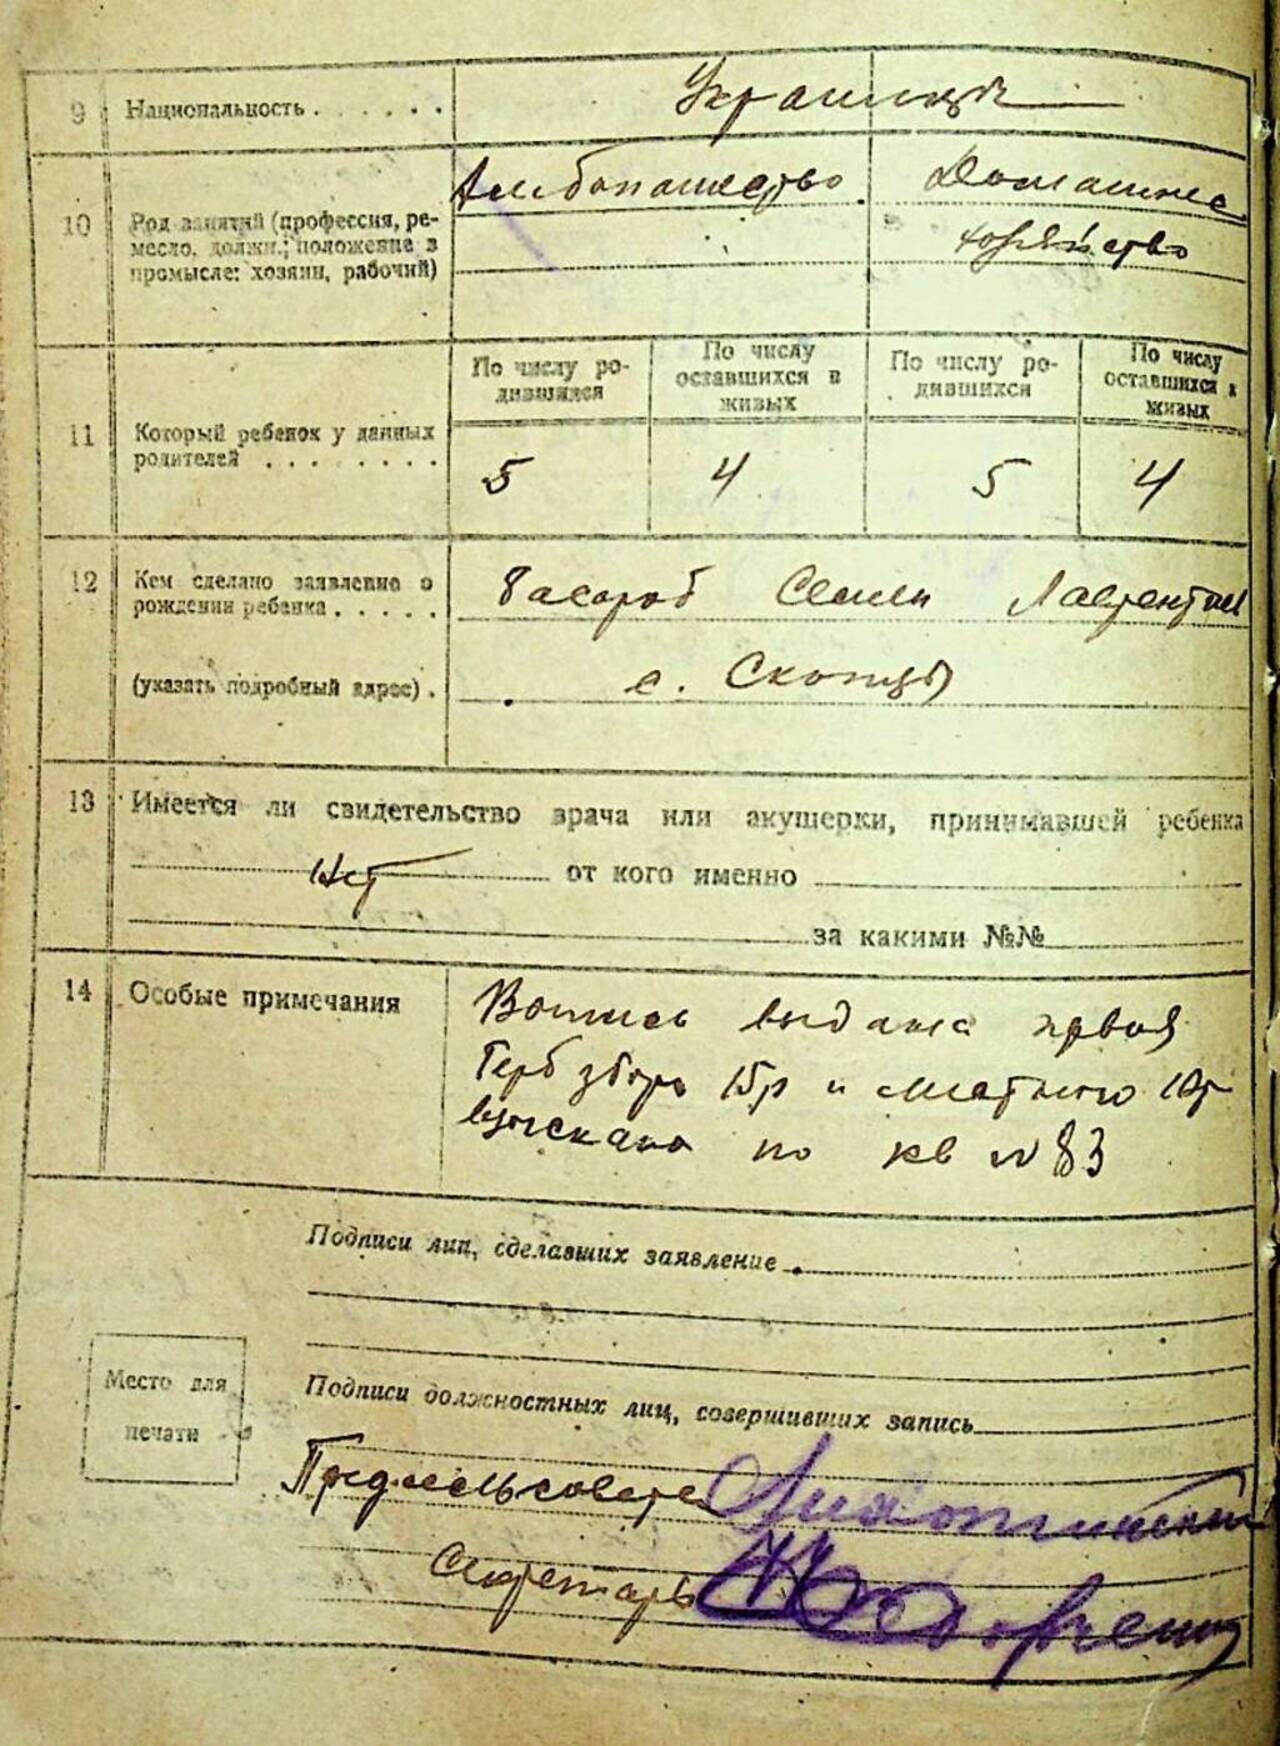 9 Национальность . . . . . . Украинцы
10 Род занятий (профессия, ре-
месло, должн.; положение в
промысле: хозяин, рабочий)
Хлебопашество Домашнее
хозяйство
11 Который ребенок у данных
родителей . . . . . . . .
По числу ро-
дившихся
По числу
оставшихся в
живых
По числу ро-
дившихся
По числу
оставшихся в
живых
5 4 5 4
12 Кем сделано заявление о
рождении ребенка . . . . .
(указать подробный адрес) .
Лаврентий
с. Скопцы
13 Имеется ли свидетельство врача или акушерки, принимавшей ребенка
Нет от кого именно
за какими №№
14 Особые примечания
выдана
Герб 15р и 10р
взыскано по кв № 83
Подписи лиц, сделавших заявление
Место для
печати
Подписи должностных лиц, совершивших запись
Пред.сельсовета
Секретарь